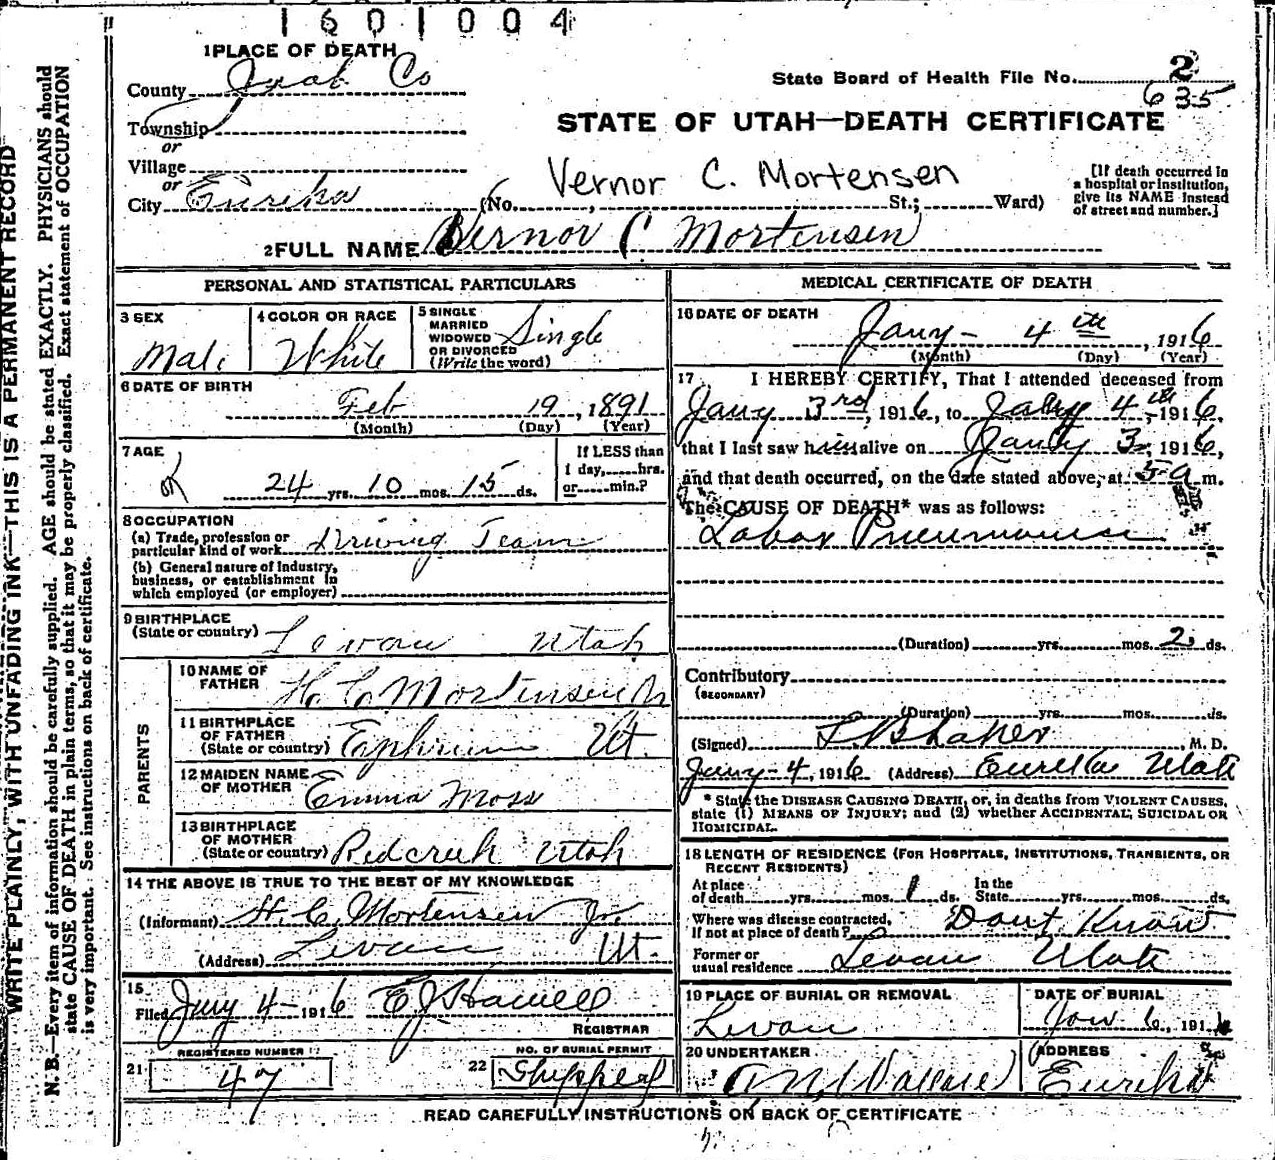 1601004
1 PLACE OF DEATH
County Juab Co
State Board of Health File No. 2
635
Township
or
Village
or
City Eureka
STATE OF UTAH—DEATH CERTIFICATE
Vernor C. Mortensen
(No. , St.; Ward)
[If death occurred in
a hospital or institution,
give its NAME instead
of street and number.]
2 FULL NAME Vernor C Mortensen
PERSONAL AND STATISTICAL PARTICULARS
3 SEX
Male
4 COLOR OR RACE
White
5 SINGLE
MARRIED
WIDOWED
OR DIVORCED
(Write the word)
Single
6 DATE OF BIRTH
Feb 19, 1891
(Month) (Day) (Year)
7 AGE
24 yrs. 10 mos. 15 ds.
If LESS than
1 day, hrs.
or min.?
8 OCCUPATION
(a) Trade, profession or
particular kind of work Driving Team
(b) General nature of Industry,
business, or establishment in
which employed (or employer)
9 BIRTHPLACE
(State or country) Levan Utah
PARENTS
10 NAME OF
FATHER H. C. Mortensen Jr
11 BIRTHPLACE
OF FATHER
(State or country) Ut.
12 MAIDEN NAME
OF MOTHER Emma Moss
13 BIRTHPLACE
OF MOTHER
(State or country) Redcreek Utah
14 THE ABOVE IS TRUE TO THE BEST OF MY KNOWLEDGE
(Informant) H. C. Mortensen Jr.
(Address) Levan Ut.
15
Filed Jany 4- 1916 E J Howell
REGISTRAR
REGISTERED NUMBER
21 47
NO. OF BURIAL PERMIT
22 Shipped
MEDICAL CERTIFICATE OF DEATH
16 DATE OF DEATH
Jany- 4th, 1916
(Month) (Day) (Year)
17 I HEREBY CERTIFY, That I attended deceased from
Jany 3rd, 1916, to Jany 4th, 1916,
that I last saw him alive on Jany 3, 1916,
and that death occurred, on the date stated above, at 5 a m.
The CAUSE OF DEATH* was as follows:
Lobar Pneumonia
(Duration) yrs. mos. 2 ds.
Contributory
(SECONDARY)
(Duration) yrs. mos. ds.
(Signed) M. D.
Jany-4, 1916 (Address) Eureka Utah
* State the DISEASE CAUSING DEATH, or, in deaths from VIOLENT CAUSES,
state (1) MEANS OF INJURY; and (2) whether ACCIDENTAL, SUICIDAL OR
HOMICIDAL.
18 LENGTH OF RESIDENCE (FOR HOSPITALS, INSTITUTIONS, TRANSIENTS, OR
RECENT RESIDENTS)
At place
of death yrs. mos. 1 ds.
In the
State yrs. mos. ds.
Where was disease contracted,
If not at place of death? Dont Know
Former or
usual residence Levan Utah
19 PLACE OF BURIAL OR REMOVAL
Levan
DATE OF BURIAL
Jan 6, 191
20 UNDERTAKER
Wallace
ADDRESS
Eureka
READ CAREFULLY INSTRUCTIONS ON BACK OF CERTIFICATE
WRITE PLAINLY, WITH UNFADING INK—THIS IS A PERMANENT RECORD
N. B.—Every item of information should be carefully supplied. AGE should be stated EXACTLY. PHYSICIANS should
state CAUSE OF DEATH in plain terms, so that it may be properly classified. Exact statement of OCCUPATION
is very important. See instructions on back of certificate.